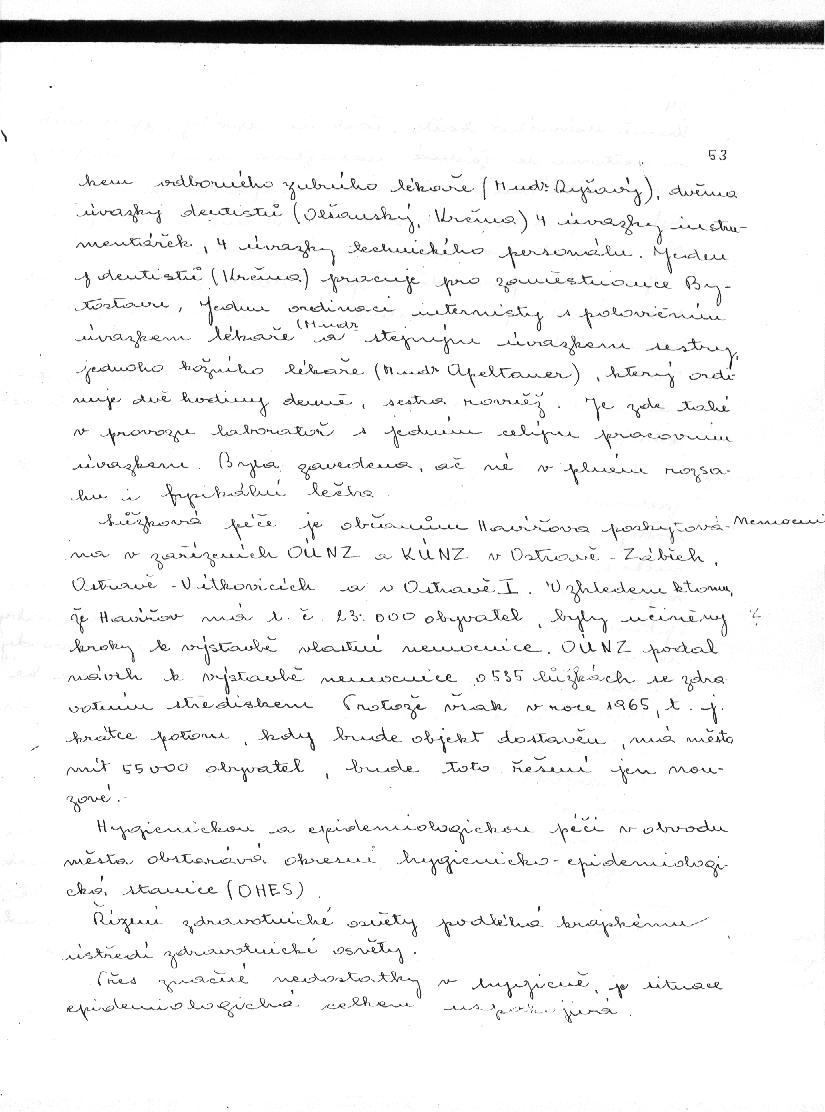 53
kem odborného zubního lékaře (Mudr. Ryšavý), dvěma
úvazky dentistů (Olšanský, Krčma) 4 úvazky instru-
mentářek, 4 úvazky technického personálu. Jeden
z dentistů (Krčma) pracuje pro zaměstnance By-
tostavu, jednu ordinaci internisty s polovičním
úvazkem lékaře (Mudr a stejným úvazkem sestry,
jednoho kožního lékaře (Mudr Apeltauer), který ordi-
nuje dvě hodiny denně, sestra rovněž. Je zde také
v provozu laboratoř s jedním celým pracovním
úvazkem. Byla zavedena, ač né v plném rozsa-
hu i fyzikální léčba.
Lůžková péče je občanům Havířova poskytová- Nemocni
na v zařízeních OÚNZ a KÚNZ v Ostravě - Zábřeh,
Ostravě - Vítkovicích a v Ostravě I. Vzhledem ktomu,
že Havířov má t. č. 23.000 obyvatel, byly učiněny
kroky k výstavbě vlastní nemocnice. OÚNZ podal
návrh k výstavbě nemocnice o 535 lůžkách se zdra
votním střediskem Protože však v roce 1965, t. j.
krátce potom, kdy bude objekt dostavěn, má město
mít 55000 obyvatel, bude toto řešení jen nou-
zové.-
Hygienickou a epidemiologickou péči v obvodu
města obstarává okresní hygienicko-epidemiologi-
cká stanice (OHES).
Řízení zdravotnické osvěty podléhá krajskému
ústředí zdravotnické osvěty.
Přes značné nedostatky v hygieně, je situace
epidemiologická celkem uspokojivá.